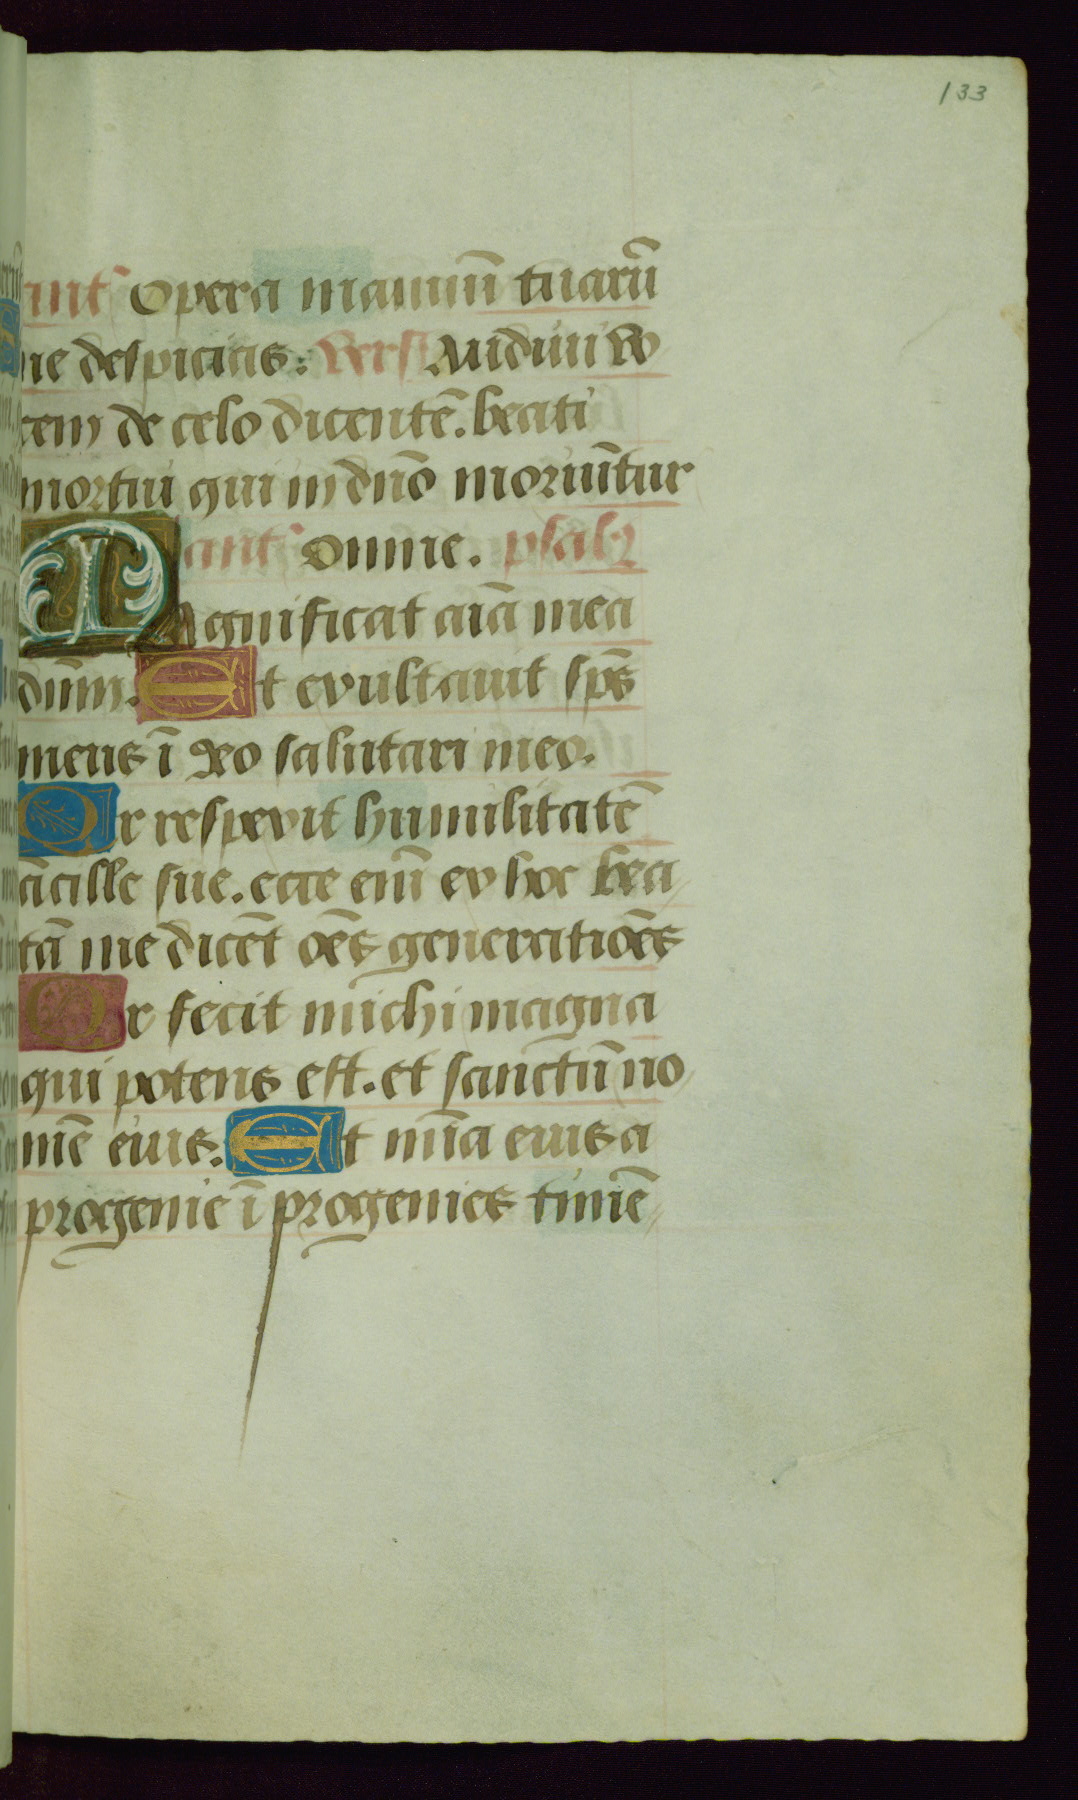 133
ant᷒ Opera manuū tuarū
ne despicias: vers᷒ Audiui vo
cem de celo dicentē. beati
mortui qui in dn̄o moriūtur
ant᷒ omne. psalꝫ
Magnificat aīa mea
dūm. Et exultauit sp̄s
meus ī deo salutari meo.
Qr respexit humilitatē
ācille sue. ecce enī ex hoc bea
tā me dicēt oēs generatiōes
Qr fecit michi magna
qui potens est. et sanctū no
mē eius. Et mīa eius a
progenie ī progenies timē